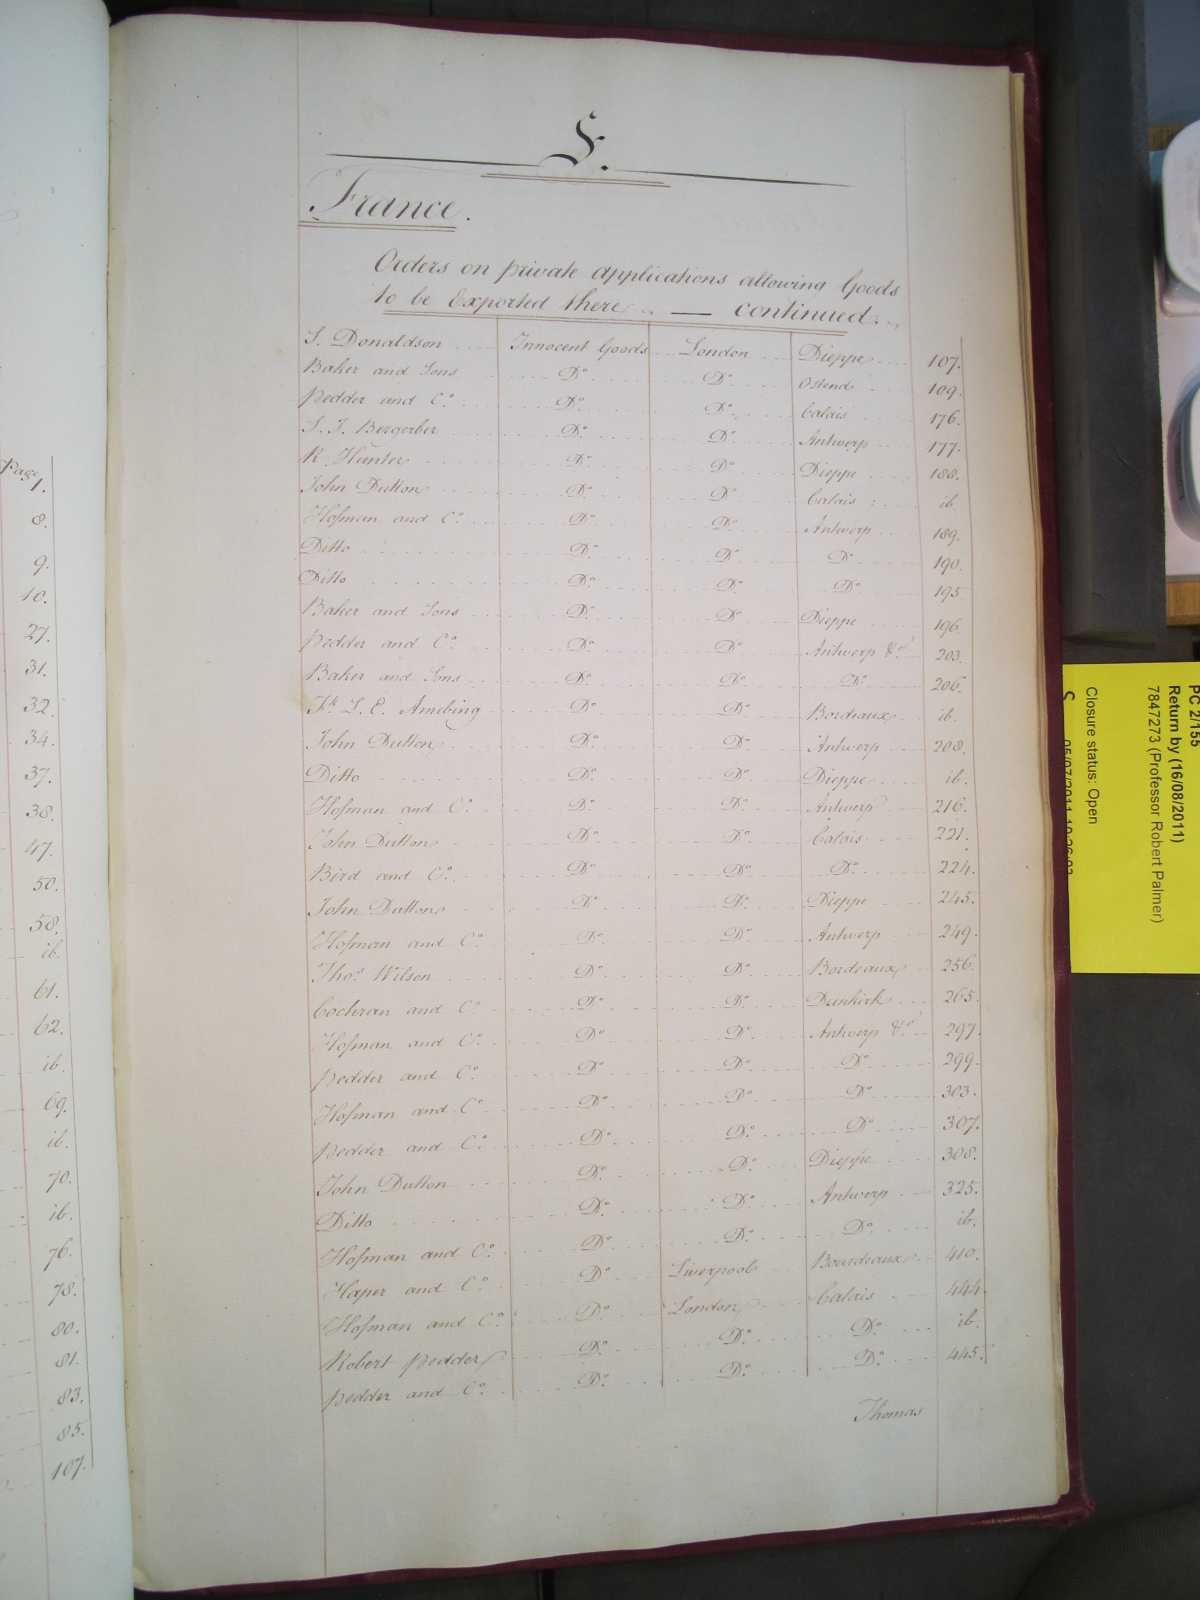 F.
France.
Orders on private applications allowing Goods
to be Exported there — continued.
S. Donaldson Innocent Goods London Dieppe 107.
Baker and Sons Do Do Ostend 109.
Pedder and Co. Do Do Calais 176.
S. J. Bergerber Do Do Antwerp 177.
R. Hunter Do Do Dieppe 188.
John Dutton Do Do Calais ib.
Hofman and Co. Do Do Antwerp 189.
Ditto Do Do Do 190.
Ditto Do Do Do 195
Baker and Sons Do Do Dieppe 196.
Pedder and Co. Do Do Antwerp &c. 203.
Baker and Sons Do Do Do 206.
L. E. Amebing Do Do Bordeaux ib.
John Dutton Do Do Antwerp 208.
Ditto Do Do Dieppe ib.
Hofman and Co. Do Do Antwerp 216.
John Dutton Do Do Calais 221.
Bird and Co. Do Do Do 224.
John Dutton Do Do Dieppe 245.
Hofman and Co. Do Do Antwerp 249.
Thos. Wilson Do Do Bordeaux 256.
Cochran and Co. Do Do Dunkirk 265.
Hofman and Co. Do Do Antwerp &c. 297.
Pedder and Co. Do Do Do 299.
Hofman and Co. Do Do Do 303.
Pedder and Co. Do Do Do 307.
John Dutton Do Do Dieppe 308.
Ditto Do Do Antwerp 325.
Hofman and Co. Do Do Do ib.
Haper and Co. Do Liverpool Bourdeaux 410.
Hofman and Co. Do London Calais 444
Robert Pedder Do Do Do ib.
Pedder and Co. Do Do Do 445.
Thomas
Page
1.
8.
9.
10.
27.
31.
32.
34.
37.
38.
47.
50.
58.
ib.
61.
62.
ib.
69.
ib.
70.
ib.
76.
78.
80.
81.
83.
85.
107.
PC 2/155
Return by (16/08/2011)
7847273 (Professor Robert Palmer)
Closure status: Open